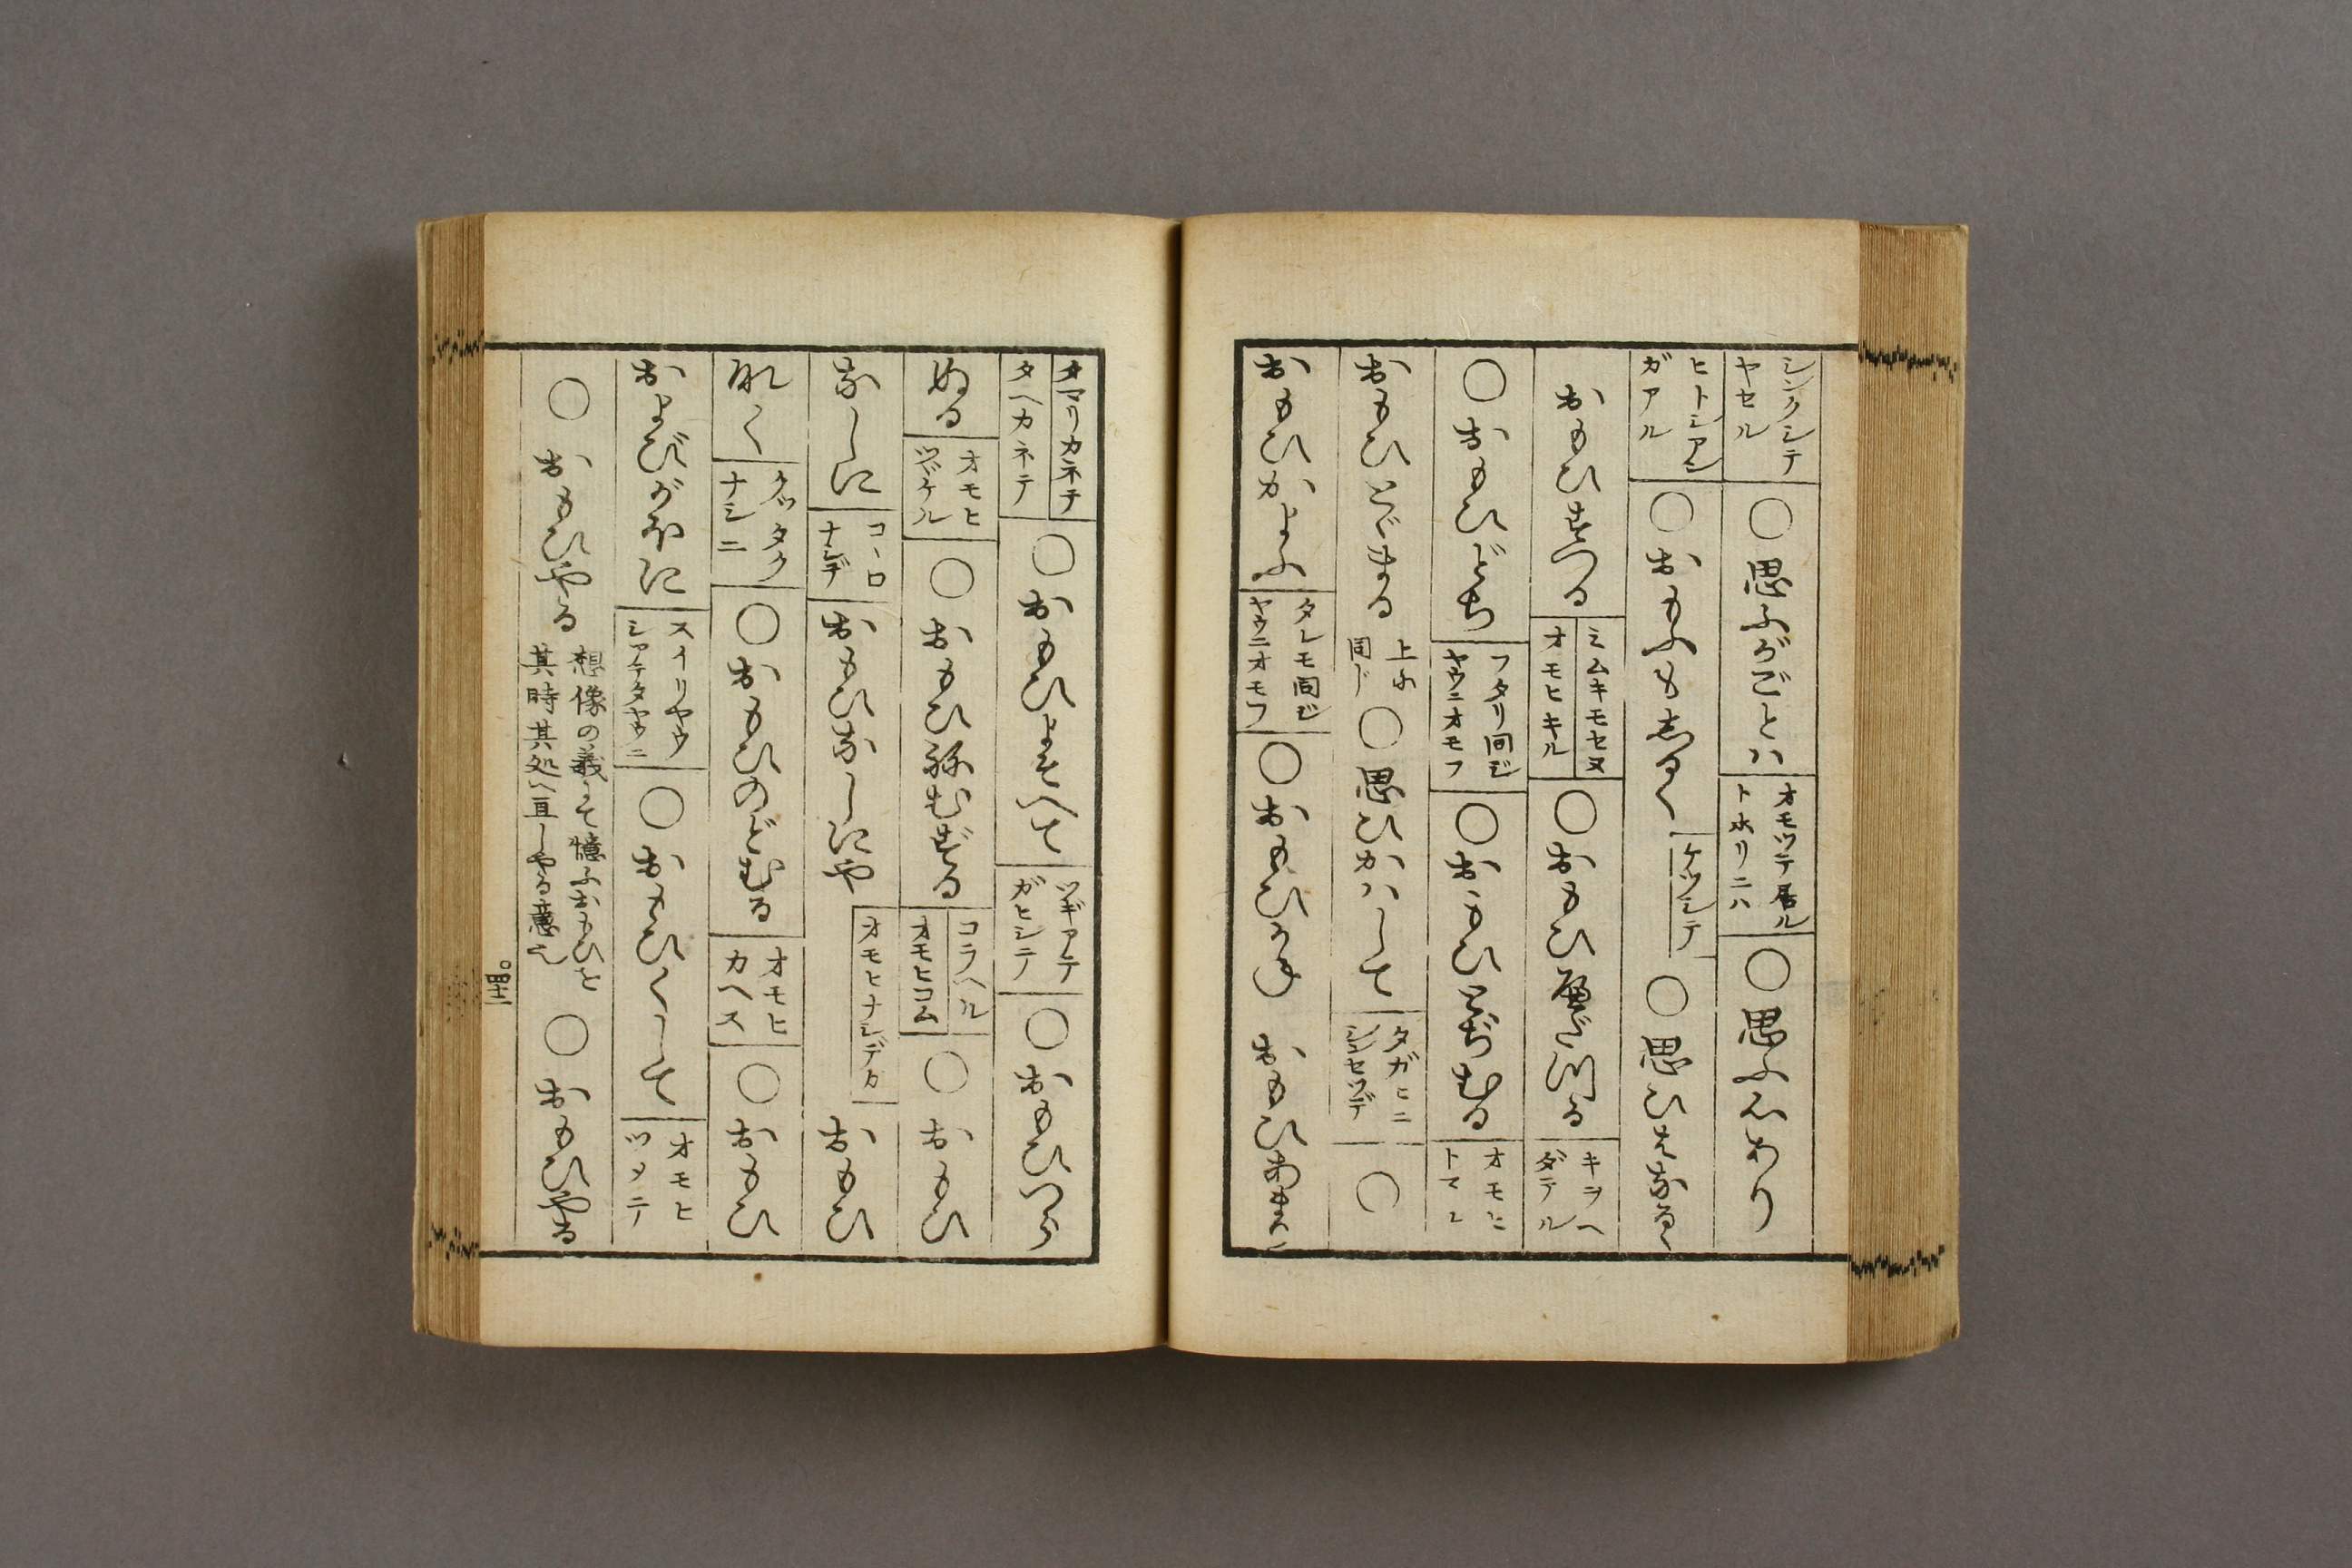 シンクシテ
ヤセル
○思ふがごとハ
オモツテ居ル
トホリニハ
○思ふ心あり
ヒトシアン
ガアル
○おもふもしるく
ケツシテ
○思ひはなるゝ
おもひすつる
ミムキモセヌ
オモヒキル
○おもひ隔だつる
キラヘ
ダテル
○おもひどち
フタリ同ジ
ヤウニオモフ
○おもひとぢむる
オモヒ
トマル
おもひとゞまる
上に
同じ
○思ひかハして
タガヒニ
シンセツデ
○
おもひかよふ
タレモ同ジ
ヤウニオモフ
○おもひかね
おもひあまり
タマリカネテ
タヘカネテ
○おもひよそへて
ツギアテ
ガヒシテ
○おもひつら
ぬる
オモヒ
ツヾケル
○おもひ孫むずる
コラヘル
オモヒコム
○おもひ
なしに
コヽロ
ナシデ
おもひなしにや
オモヒナシデカ
おもひ
れく
クツタク
ナシニ
○おもひのどむる
オモヒ
カヘス
○おもひ
およびがほに
スイリヤウ
シアテタヤウニ
○おもひくして
オモヒ
ツメテ
○おもひやる
想像の義にて憶ふおもひを
其時其処へ亘しやる意也
○おもひやる
四十二